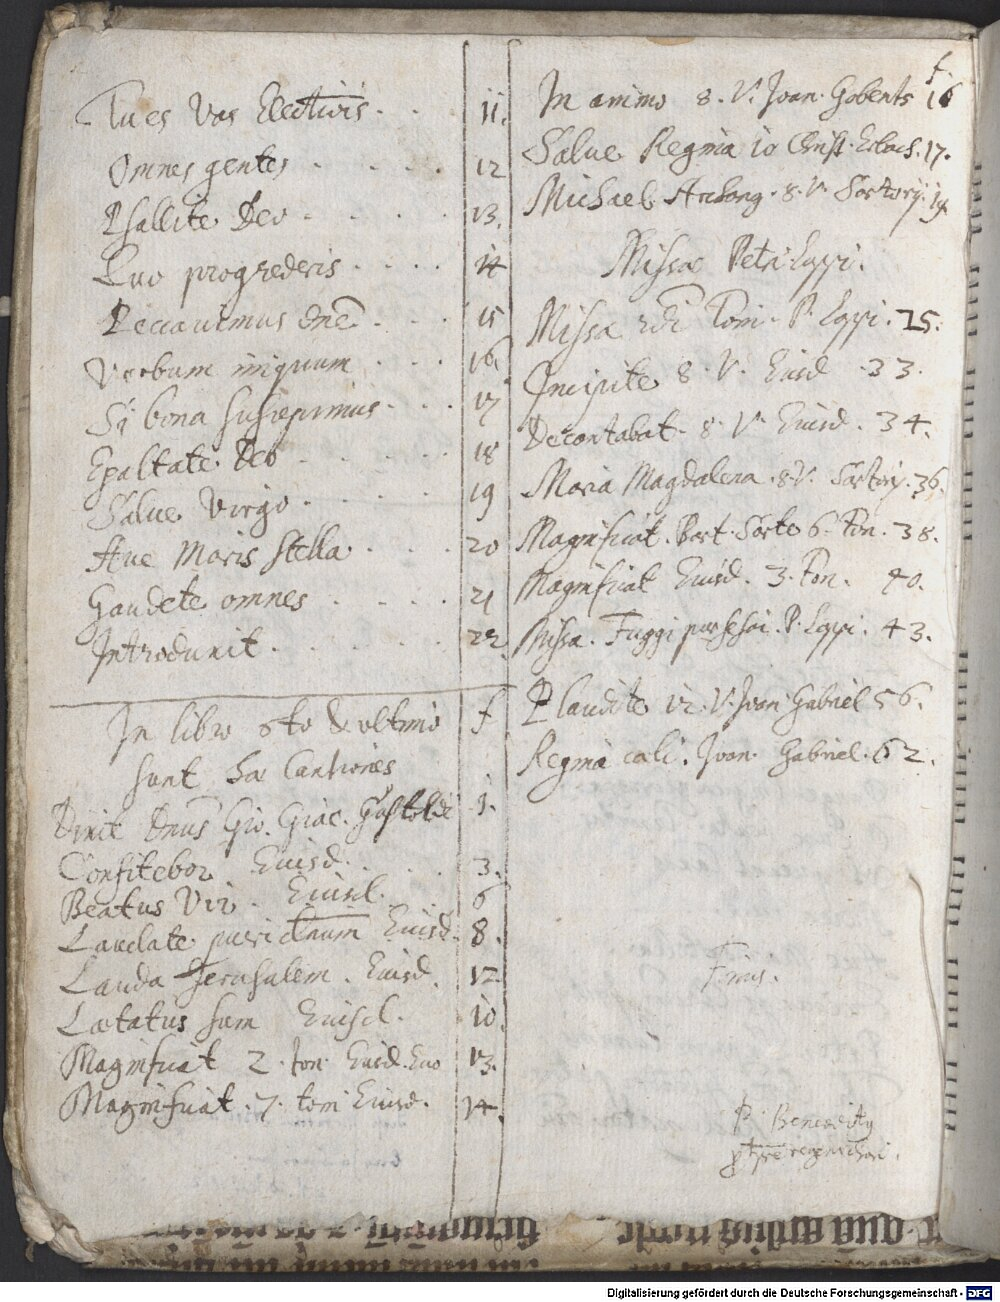 Tu es Vas Electionis . . 11.
Omnes gentes . . . . 12
Psallite Deo . . . . 13.
Quo progrederis . . . . 14
Peccavimus dne . . . 15
Verbum iniquum . . . 16
Si bona suscepimus . . . 17
Exaltate Deo . . . . 18
Salve Virgo . . . . 19
Ave Maris stella . . . 20
Gaudete omnes . . . . 21
Introduxit . . . . . 22
In libro 6to & ultimo f
sunt hae Cantiones
Dixit Dnus Gio. Giac. Gastoldi 1.
Confitebor Eiusd. . . . 3.
Beatus Vir . Eiusd. 6
Laudate pueri dnum Eiusd. 8.
Lauda Jerusalem . Eiusd. 12
Laetatus sum Eiusd. 10.
Magnificat 2. ton. Eiusd. 13.
Magnificat . 7. toni Eiusd. 14.
f.
In animo 8. V. Joan. 16
Salve Regina 10 Christ. Erbach. 17.
Michael Archang. 8. V. Sartorij. 19.
Missae Petri Lappi.
Missa Toni . P. Lappi . 25.
Incipite 8. V. Eiusd . 33.
Decantabat . 8. V. Eiusd . 34.
Maria Magdalena . 8 V. Sartorij . 36.
Magnificat . Bart. Sorte 6. Ton . 38.
Magnificat Eiusd . 3. Ton . 40.
Missa . Fuggi pur se sai . P. Lappi . 43.
Plaudite 12. V. Joan Gabriel 56.
Regina caeli . Joan . Gabriel . 62.
Finis.
P. Benedicty